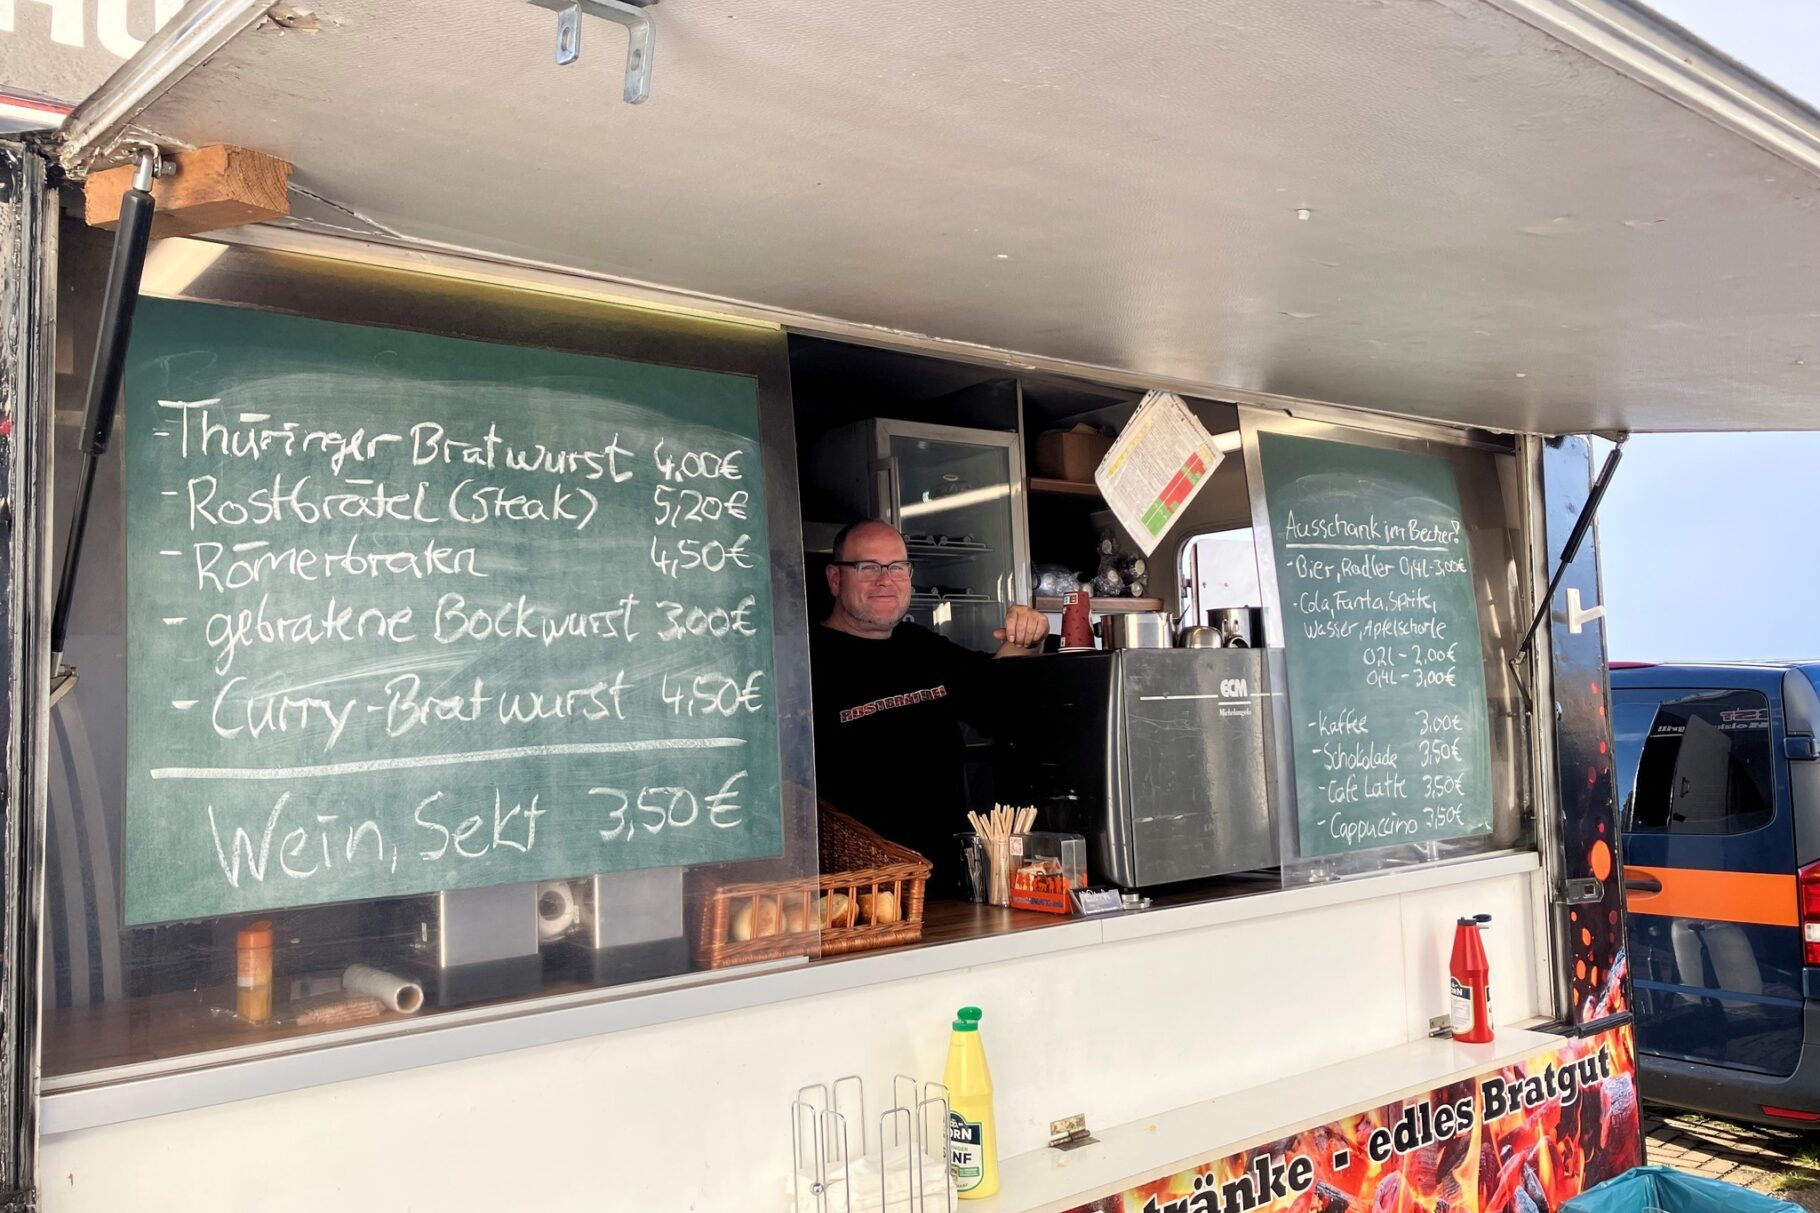 -Thüringer Bratwurst 4,00€
-Rostbrätel (Steak) 5,20€
-Römerbraten 4,50€
-gebratene Bockwurst 3,00€
-Curry-Bratwurst 4,50€
Wein, Sekt 3,50€
ROSTBRATEREI
ECM
Michelangelo
Ausschank im Becher!
-Bier, Radler 0,4l-3,00€
-Cola, Fanta, Sprite,
Wasser, Apfelschorle
0,2l-2,00€
0,4l-3,00€
-Kaffee 3,00€
-Schokolade 3,50€
-Cafe Latte 3,50€
-Cappuccino 3,50€
tränke - edles Bratgut